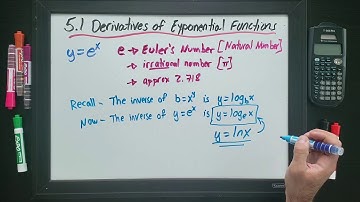 5.1 Derivatives of Exponential Functions
y=e^x e → Euler's Number [Natural Number]
→ irrational number [π]
→ approx 2.718
Recall - The inverse of b=x^y is y=log_b x
Now - The inverse of y=e^x is y=log_e x
y=lnx
EXPO